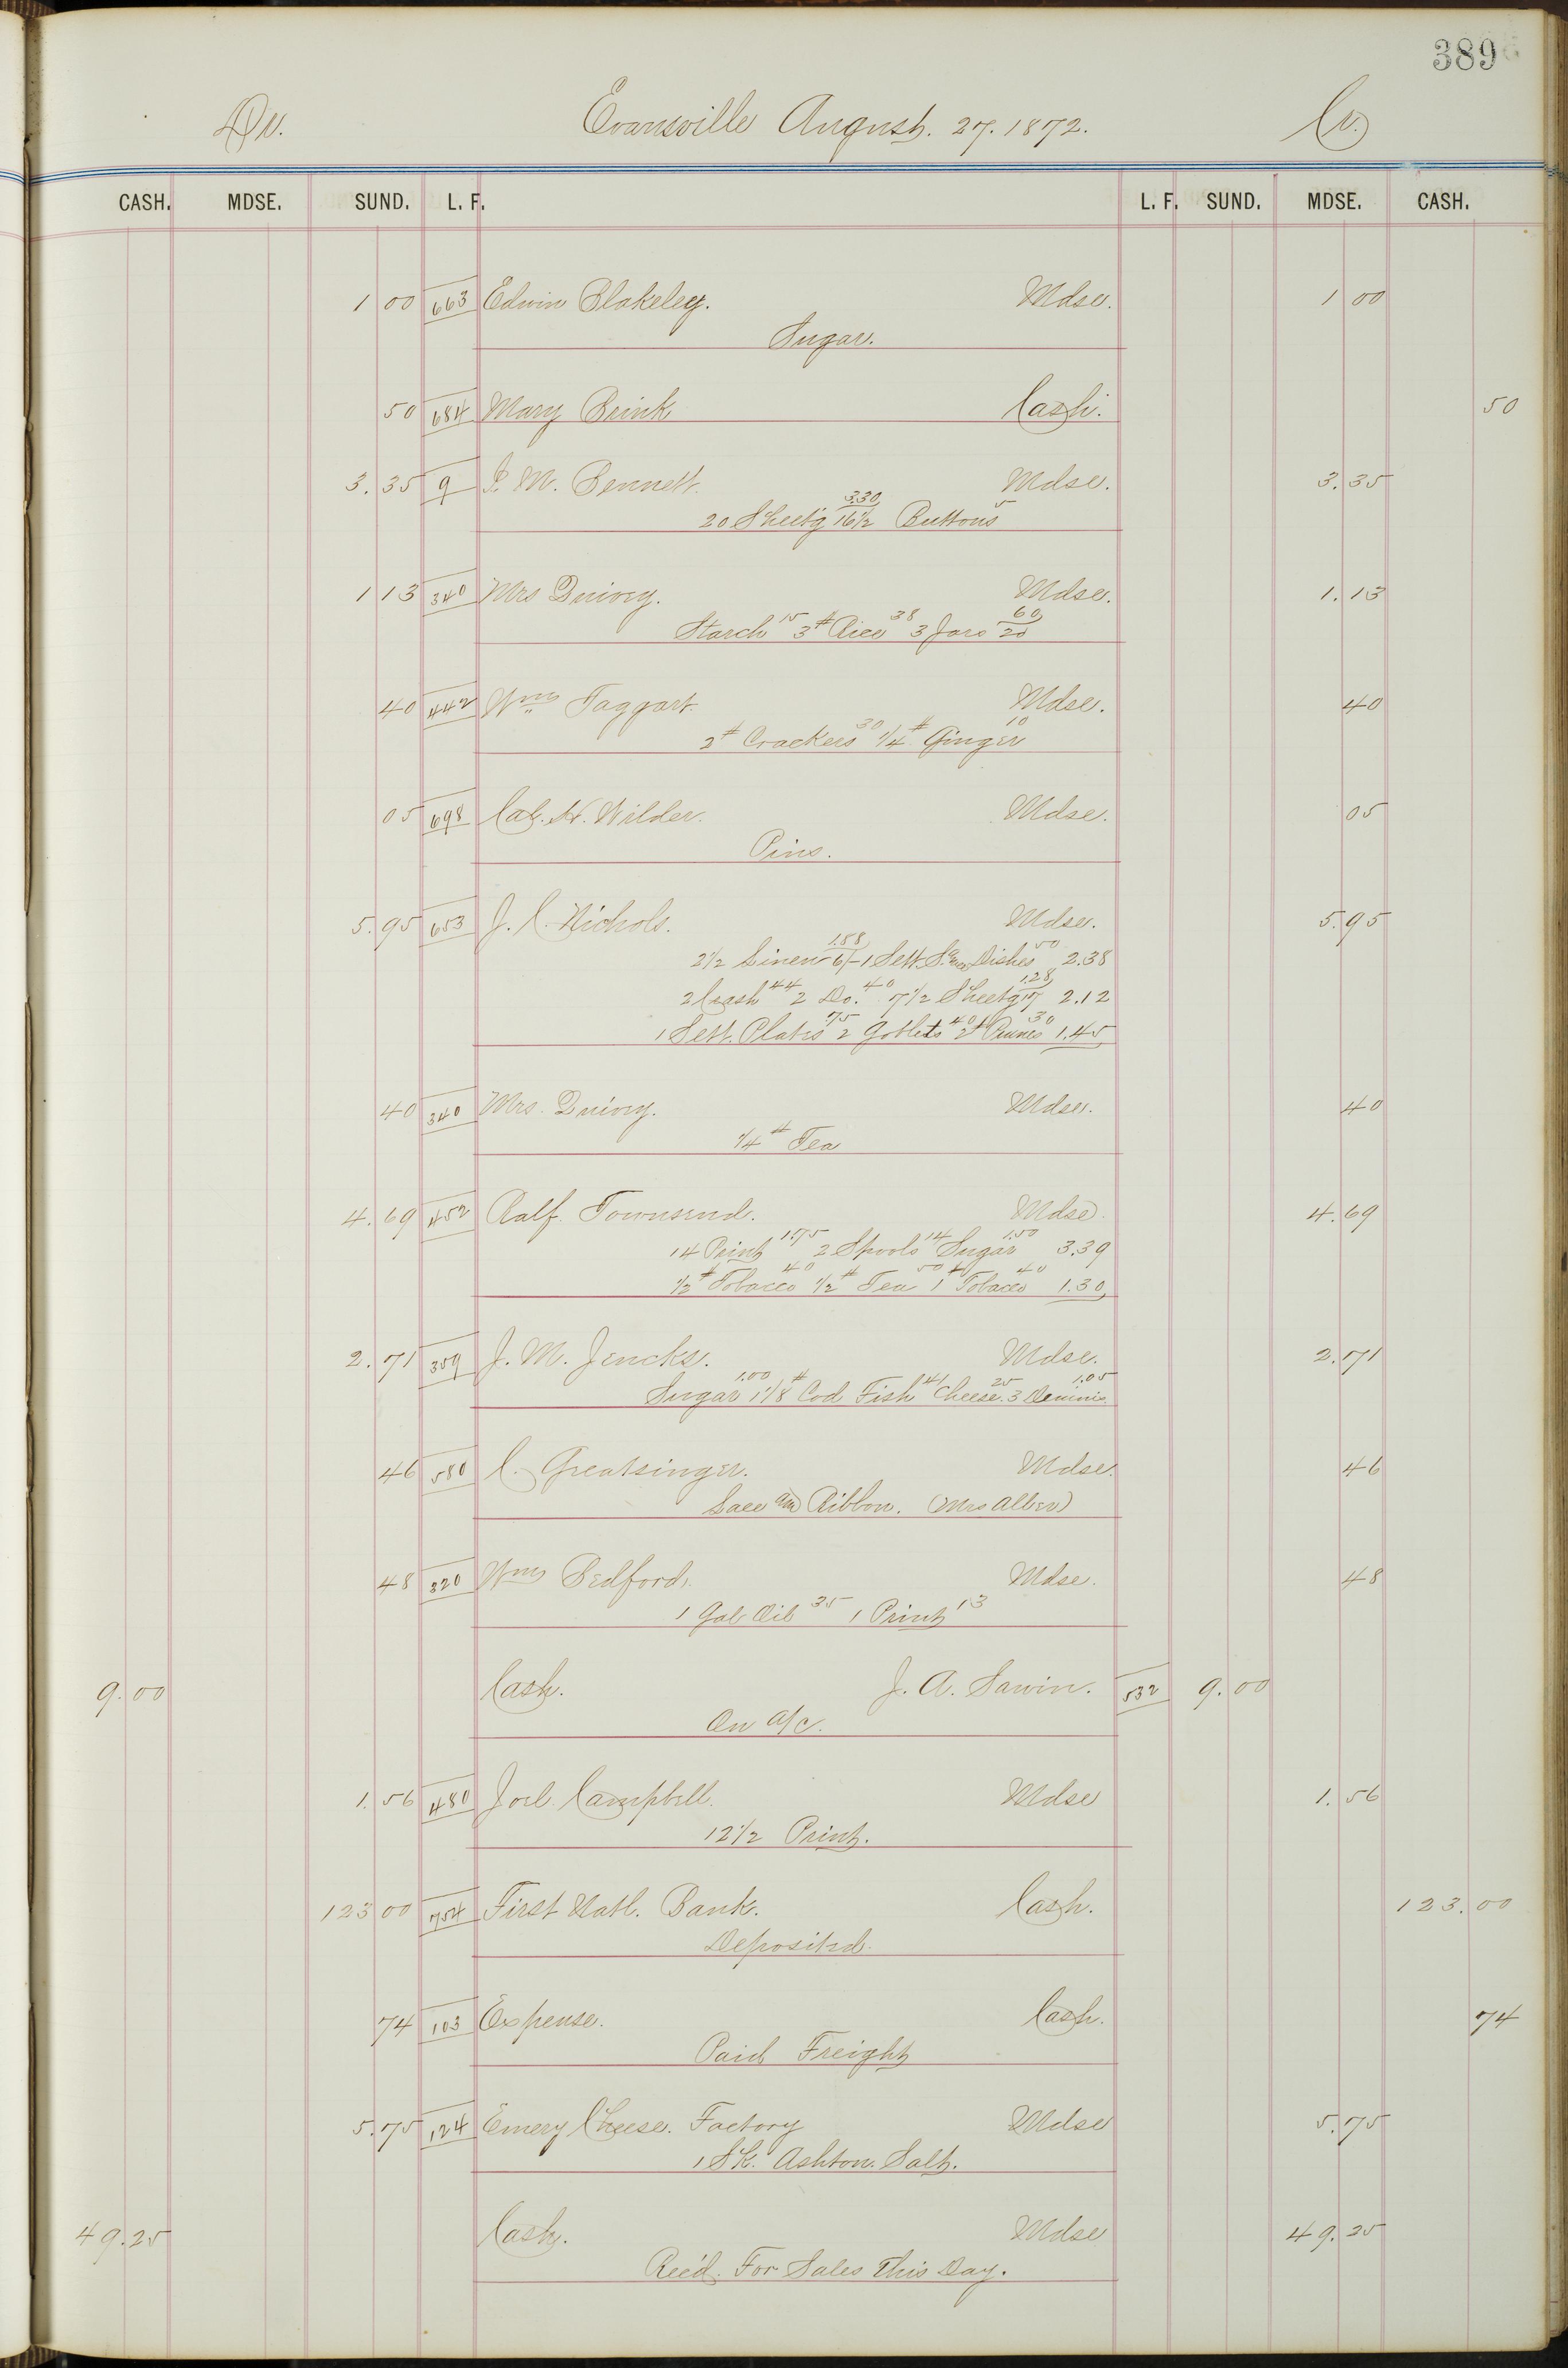 389
Dr. Evansville August. 27. 1872. Cr.
CASH. MDSE. SUND. L. F. L. F. SUND. MDSE. CASH.
1 00 663 Edwin Blakeley. Mdse. 1 00
Sugar.
50 684 Mary Brink Cash. 50
3.35 9 I. M. Bennett. Mdse. 3.35
20 Sheet'g 3.30 16 1/2 Buttons 5
1 13 340 Mrs Quivey. Mdse. 1.13
Starch 15 3# Rice 38 3 Jars 60 20
40 442 Wm Taggart. Mdse. 40
2# Crackers 30 1/4# Ginger 10
05 698 Cal. H. Wilder. Mdse. 05
Pins.
5.95 653 J. C. Nichols. Mdse. 5.95
2 1/2 Linen 1.88 6/- 1 Sett Dishes 50 2.38
2 Crash 44 2 Do. 40 7 1/2 Sheetg 1.28 17 2.12
1 Sett. Plates 75 2 Goblets 40 2# Prunes 30 1.45
40 340 Mrs. Quivey. Mdse. 40
1/4# Tea
4.69 452 Ralf. Townsend. Mdse. 4.69
14 Print 1.75 2 Spools 14 Sugar 1.50 3.39
1/2# Tobacco 40 1/2# Tea 50 1# Tobacco 40 1.30
2.71 359 J. M. Jencks. Mdse. 2.71
Sugar 1.00 1 1/8# Cod Fish 41 Cheese. 25 3 1.05
46 580 C. Greatsinger. Mdse. 46
Lace and Ribbon. (Mrs Allen)
48 320 Wm Bedford. Mdse. 48
1 Gal Oil 35 1 Print 13
9.00 Cash. J. A. Sawin. 532 9.00
On a/c.
1.56 480 Joel Campbell. Mdse 1.56
12 1/2 Print.
123 00 754 First Natl. Bank. Cash. 123.00
Deposited.
74 103 Expense. Cash. 74
Paid Freight
5.75 124 Emery Cheese. Factory Mdse 5.75
1 SK. Ashton. Salt.
49.25 Cash. Mdse 49.25
Rec'd. For Sales This Day.